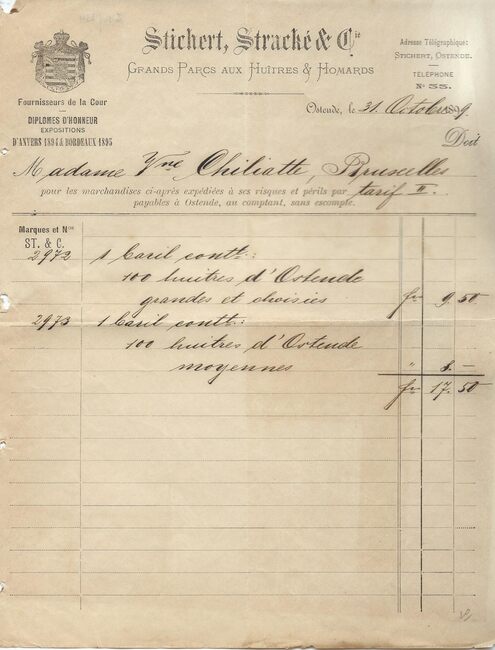 Stichert, Stracké & Cie
GRANDS PARCS AUX HUÎTRES & HOMARDS
Fournisseurs de la Cour
DIPLOMES D'HONNEUR
EXPOSITIONS
D'ANVERS 1894 & BORDEAUX 1895
Adresse Télégraphique:
STICHERT, OSTENDE.
TÉLÉPHONE
No 55.
Ostende, le 31 Octobre 189
Doit
Madame Vve Chiliatte, Bruxelles
pour les marchandises ci-après expédiées à ses risques et périls par tarif II.
payables à Ostende, au comptant, sans escompte.
Marques et Nos
ST. & C.
2972 1 Baril contt:
100 huitres d'Ostende
grandes et choisies fr 9.50
2973 1 Baril contt:
100 huitres d'Ostende
moyennes " 8 —
fr 17.50